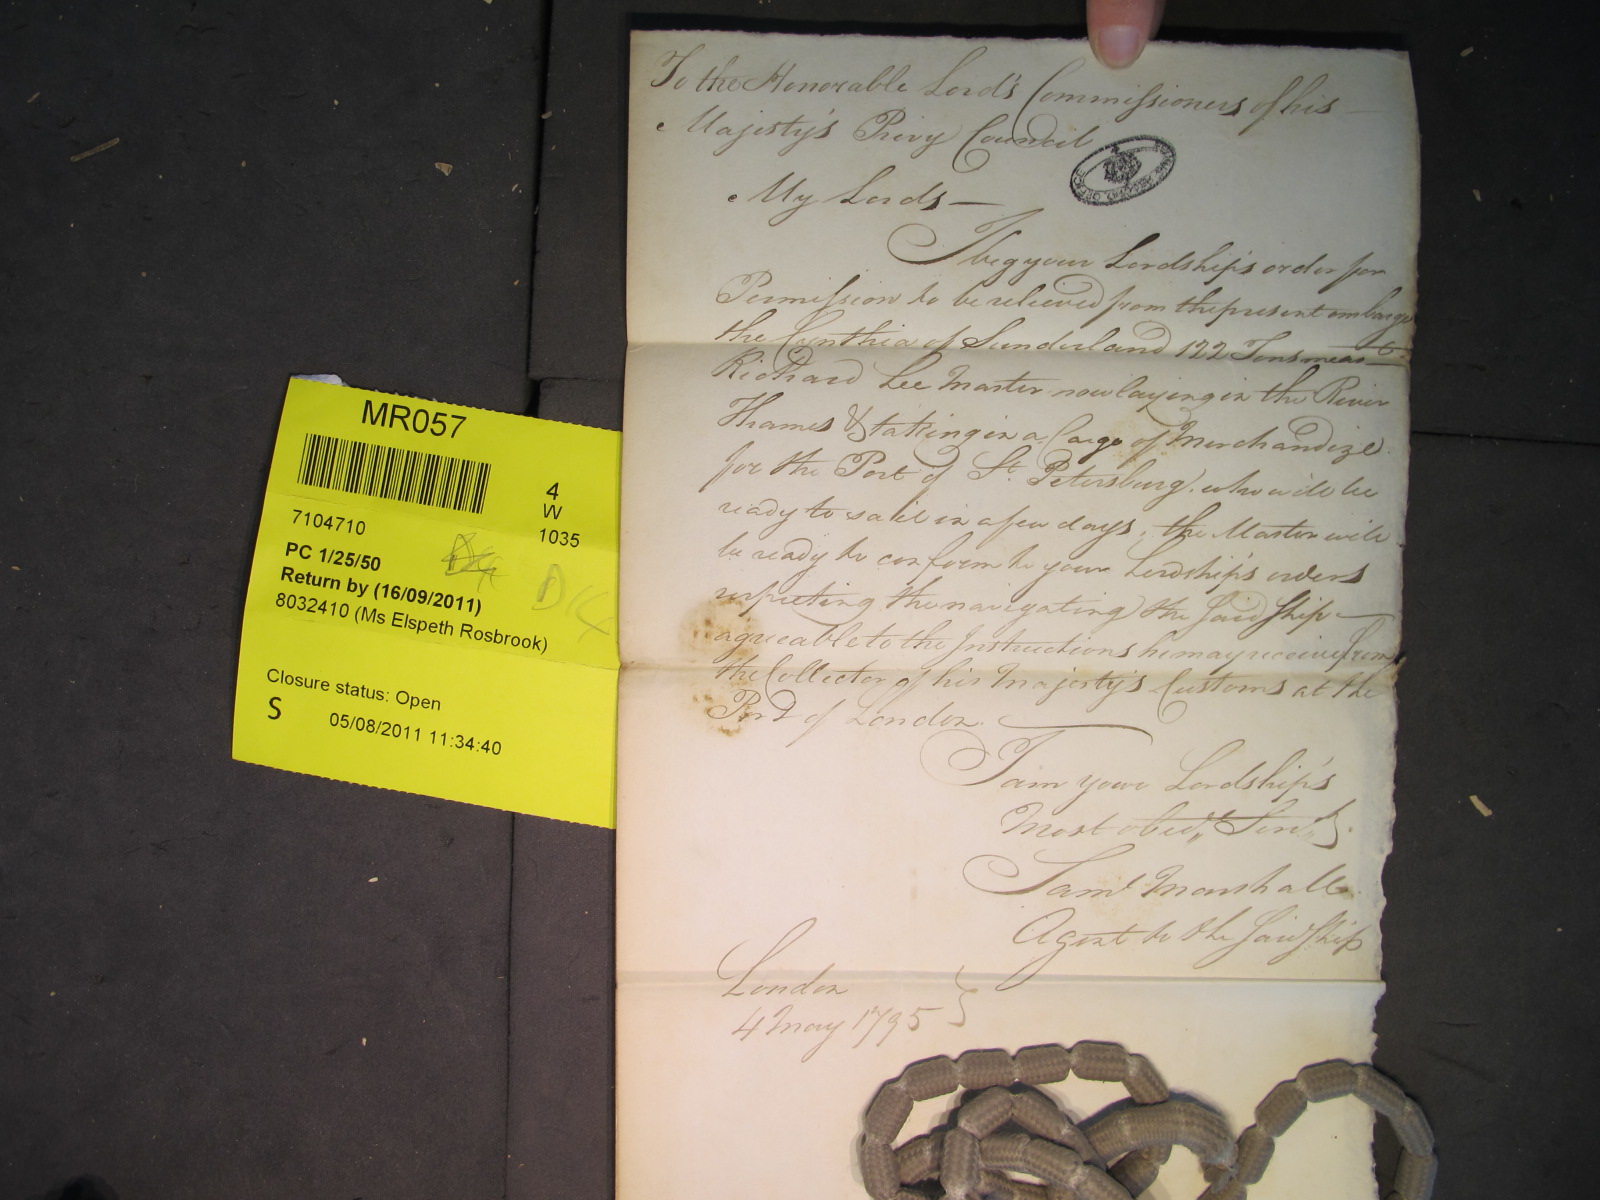 To the Honorable Lord's Commissioners of his
Majesty's Privy Council
My Lords
I beg your Lordship's order for
Permission to be relieved from the present embargo
the Cynthia of Sunderland 122 Tons meast
Richard Lee Master now laying in the River
Thames & taking in a Cargo of Merchandize
for the Port of St. Petersburg, who will be
ready to sail in a few days, the Master will
be ready to conform to your Lordship's orders
respecting the navigating the said Ship
agreeable to the Instructions he may receive from
the Collector of his Majesty's Customs at the
Port of London.
I am your Lordship's
Most obedt Servt
Saml Marshall
Agent to the said Ship
London
4 May 1795
MR057
4
W
1035
7104710
PC 1/25/50
Return by (16/09/2011)
8032410 (Ms Elspeth Rosbrook)
Closure status: Open
S 05/08/2011 11:34:40